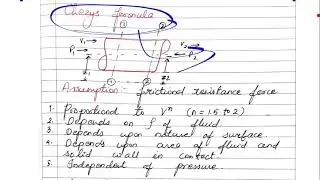 Chezys formula
① ②
V₁ V₂
P₁ P₂
z₁ z₂
Assumption: frictional resistance force
1. Proportional to Vⁿ (n = 1.5 to 2)
2. Depends on ρ of fluid.
3. Depends upon nature of surface.
4. Depends upon area of fluid and
solid wall in contact.
5. Independent of pressure